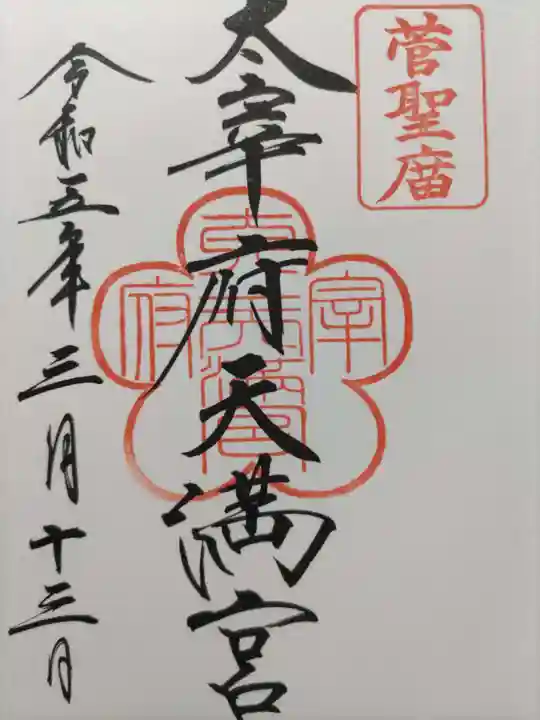 菅聖庿
太宰府天満宮
令和五年三月十三日